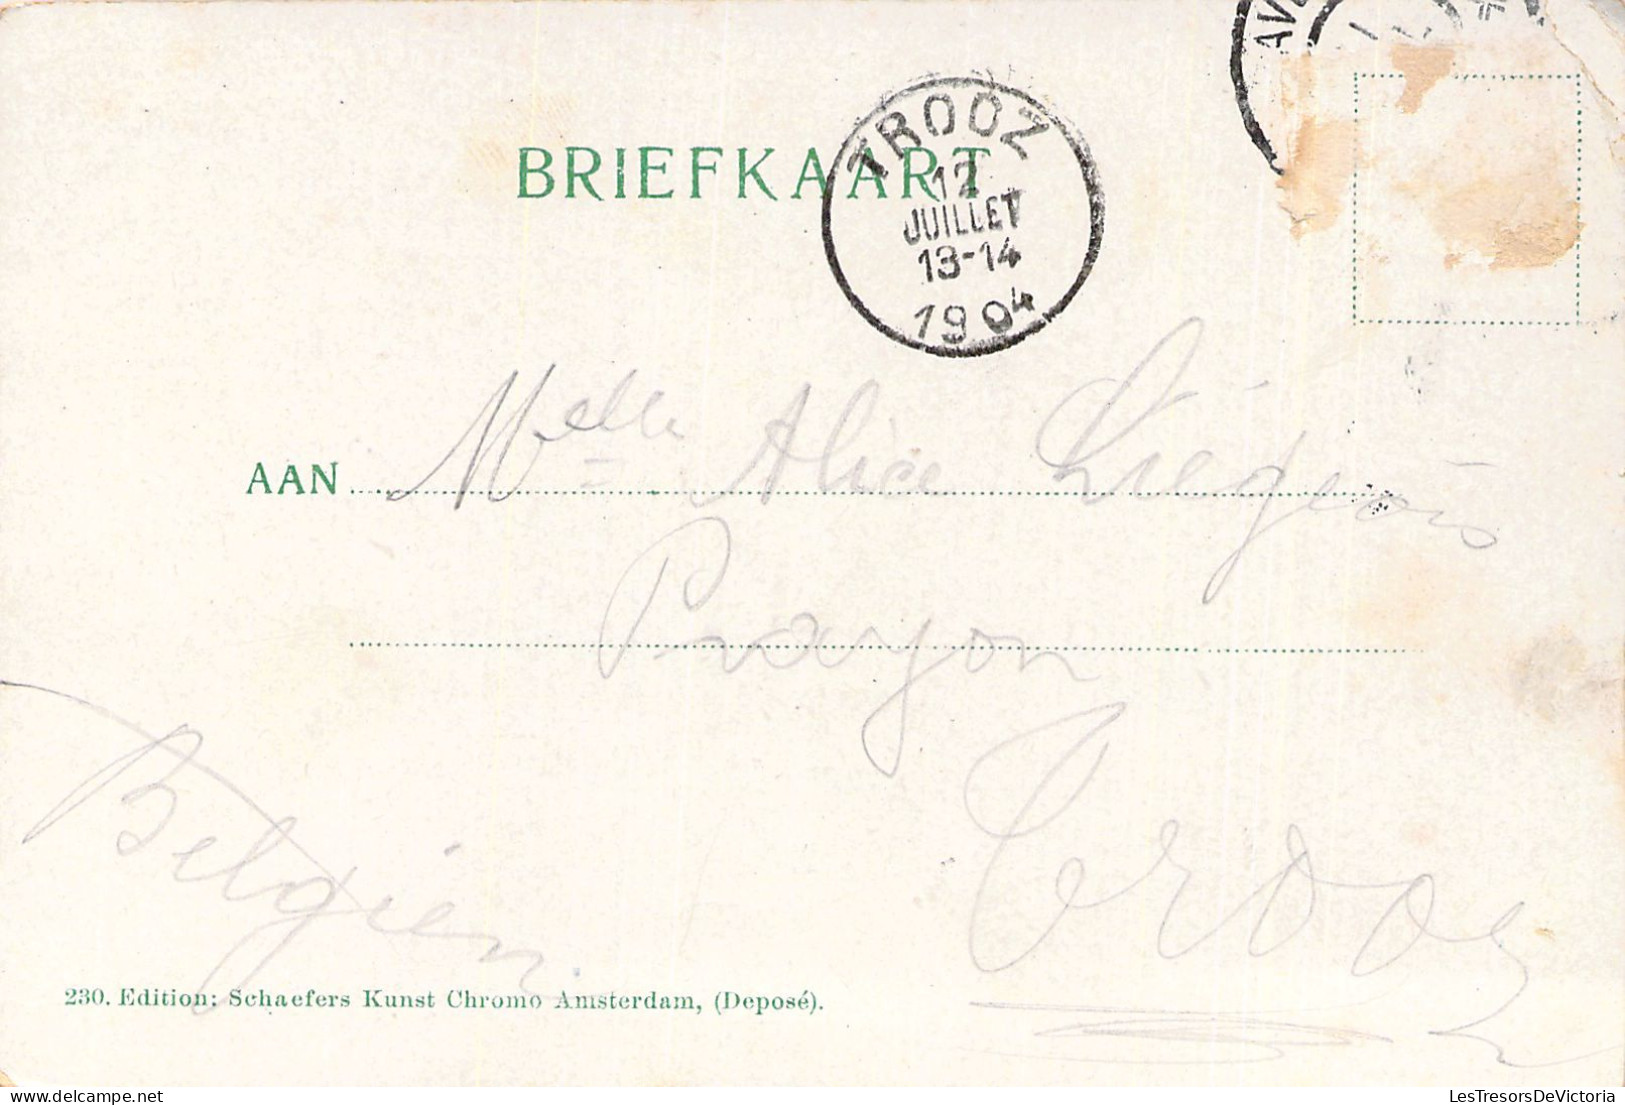 AV
TROOZ
12
JUILLET
13-14
1904
BRIEFKAART
AAN Melle Alice Liégeois
Prayon
Trooz
Belgien
230. Edition: Schaefers Kunst Chromo Amsterdam, (Deposé).
LesTresorsDeVictoria.com